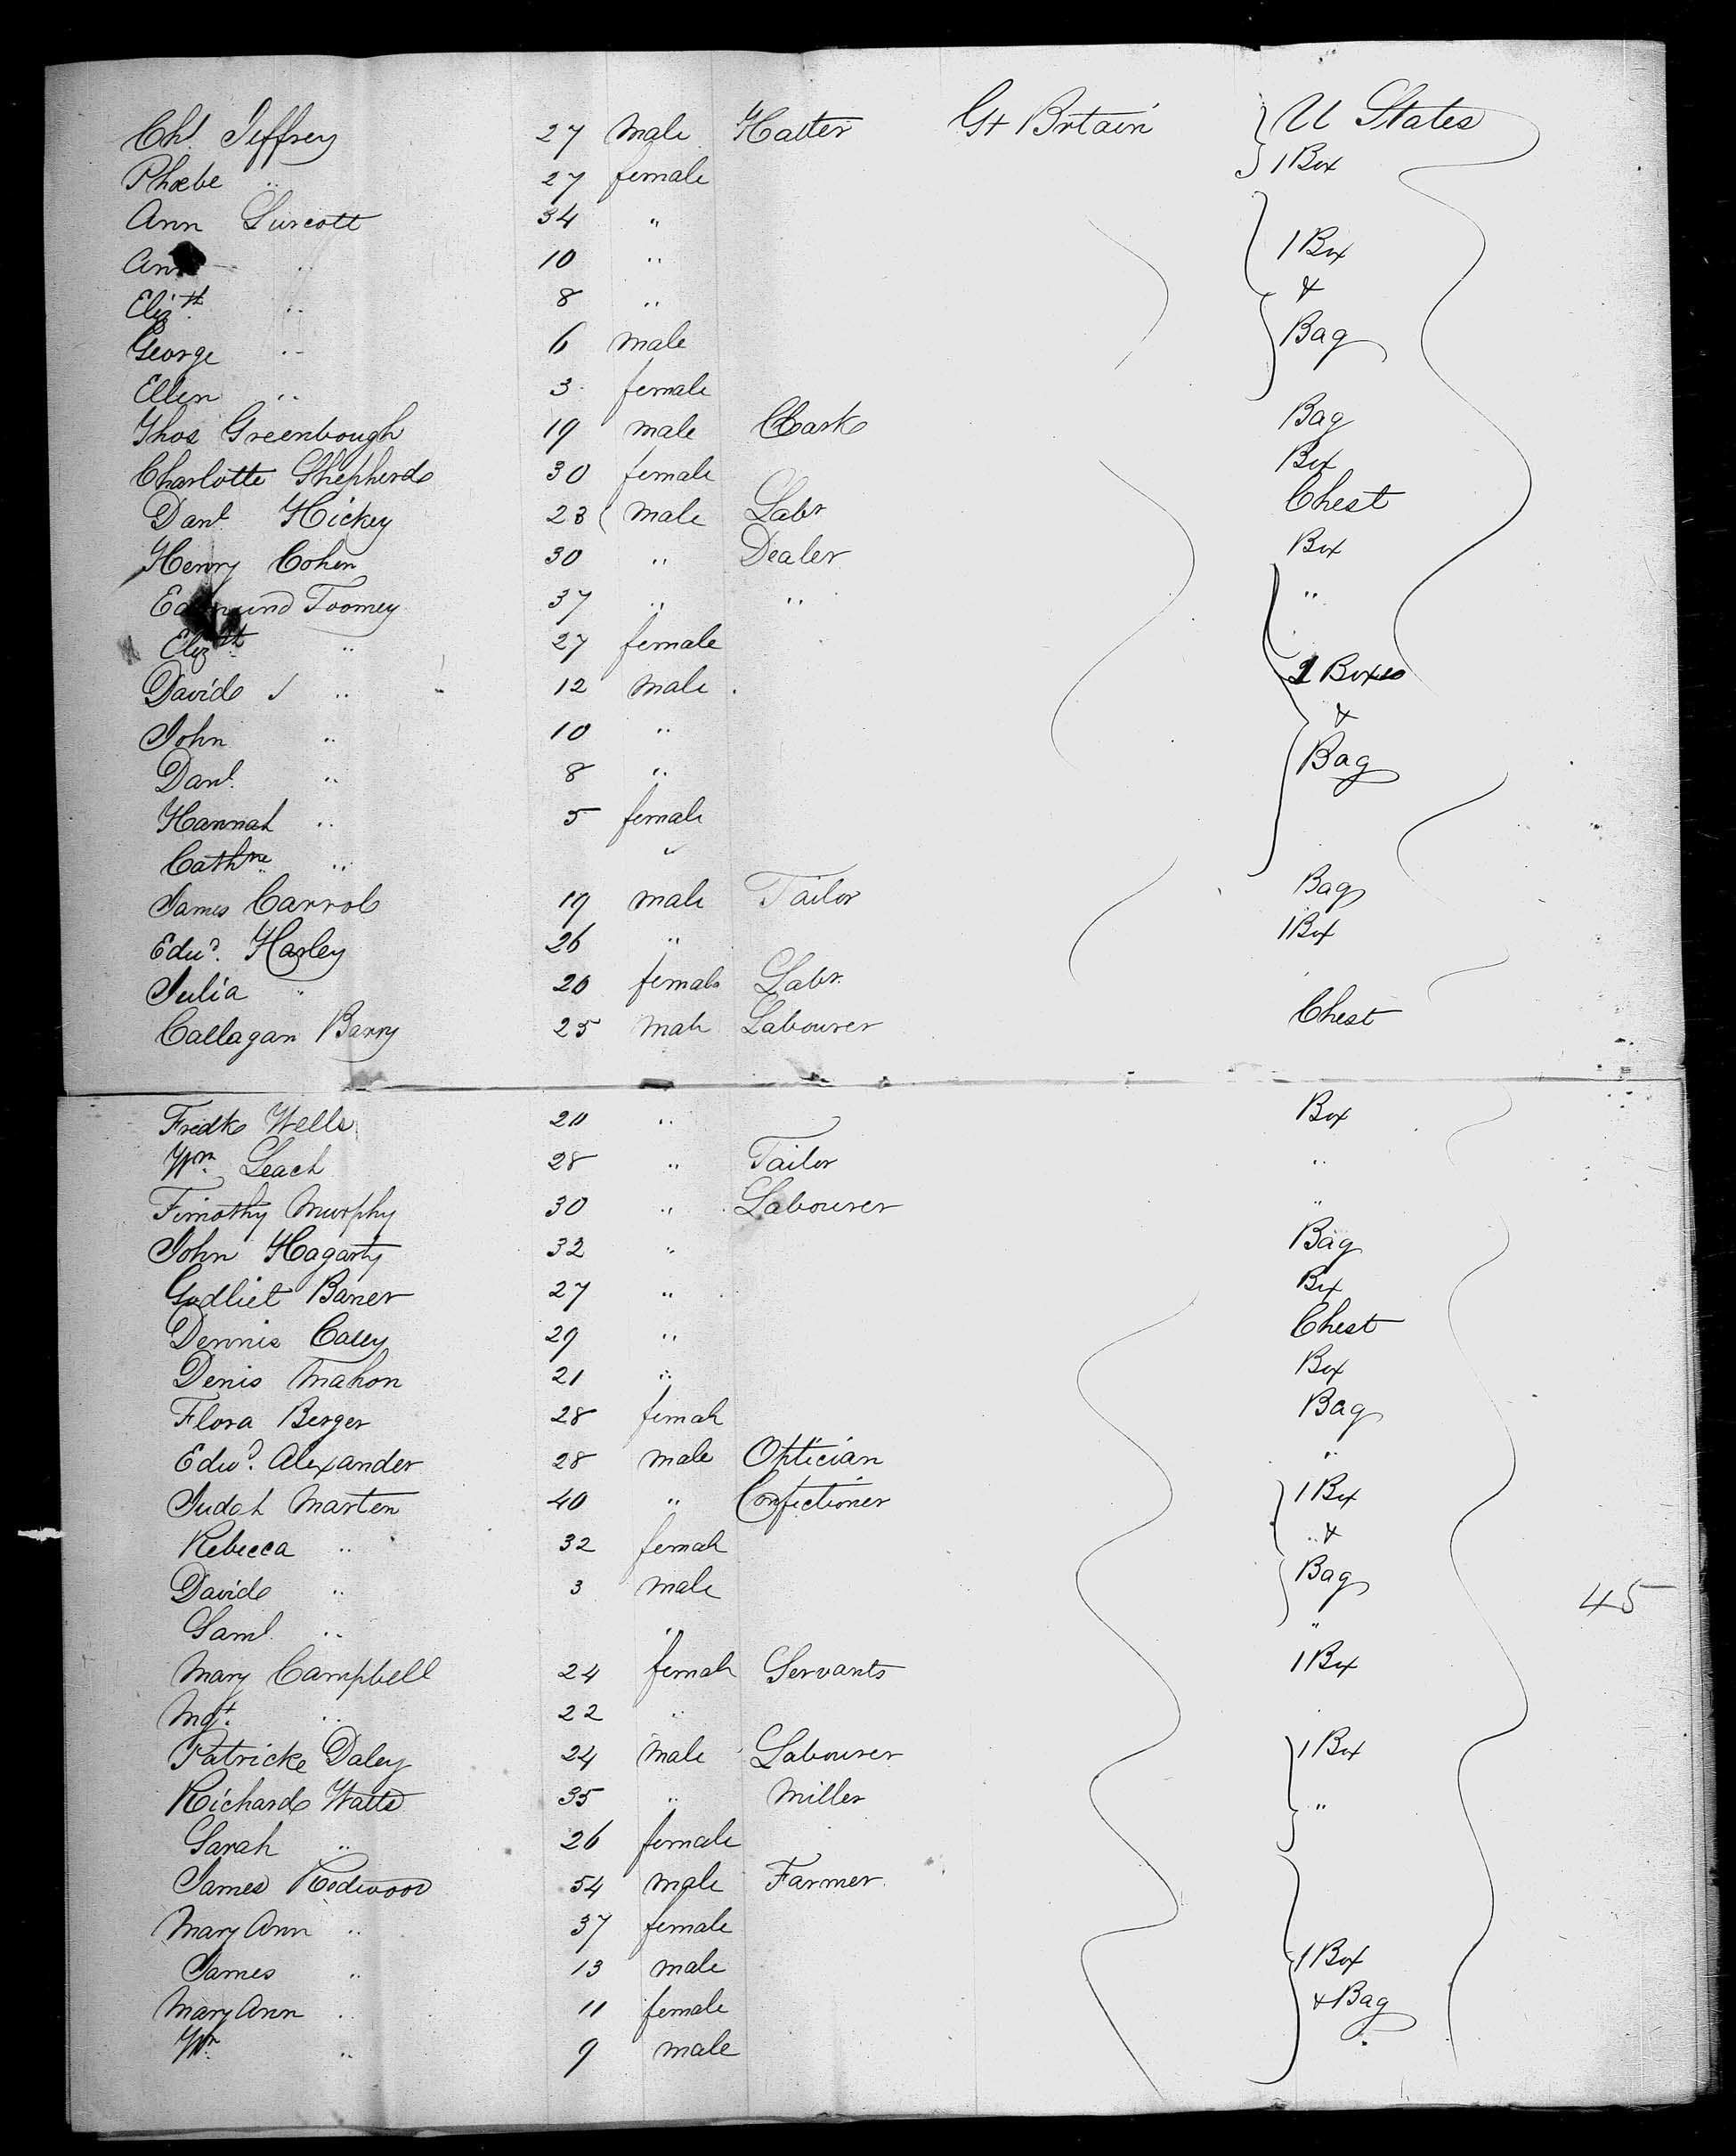 Chs. Jeffrey 27 male Hatter Gt Brtain U States
Phœbe " 27 female 1 Box
Ann Surcott 34 "
Ann " 10 " 1 Box
Elizth " 8 " &
George " 6 male Bag
Ellen " 3 female
Thos Greenbough 19 male Clark Bag
Charlotte Shepherd 30 female Box
Danl Hickey 23 male Labr Chest
Henry Cohen 30 " Dealer Box
Edmund Toomey 37 " " "
Elizth " 27 female
David J " 12 male 2 Boxes
John " 10 " &
Danl. " 8 " Bag
Hannah " 5 female
Cathne " "
James Carrol 19 male Tailor Bag
Edwd. Harley 26 " 1 Box
Julia " 20 female Labr.
Callagan Barry 25 male Labourer Chest
Fredk Wells 20 " Box
Wm. Leach 28 " Tailor "
Timothy Murphy 30 " Labourer "
John Hagarty 32 " Bag
Godliet Baner 27 " Box
Dennis Caley 29 " Chest
Denis Mahon 21 " Box
Flora Berger 28 female Bag
Edwd. Alexander 28 male Optician "
Judah Marten 40 " Confectioner 1 Box
Rebecca " 32 female " &
David " 3 male Bag
45
Saml. " " "
Mary Campbell 24 female Servants 1 Box
Mgt. " 22 "
Patrick Daley 24 male Labourer 1 Box
Richard Watts 35 " Miller "
Sarah " 26 female
James Rodwood 54 male Farmer
Mary Ann " 37 female
James " 13 male 1 Box
Mary Ann " 11 female & Bag
Wm. " 9 male